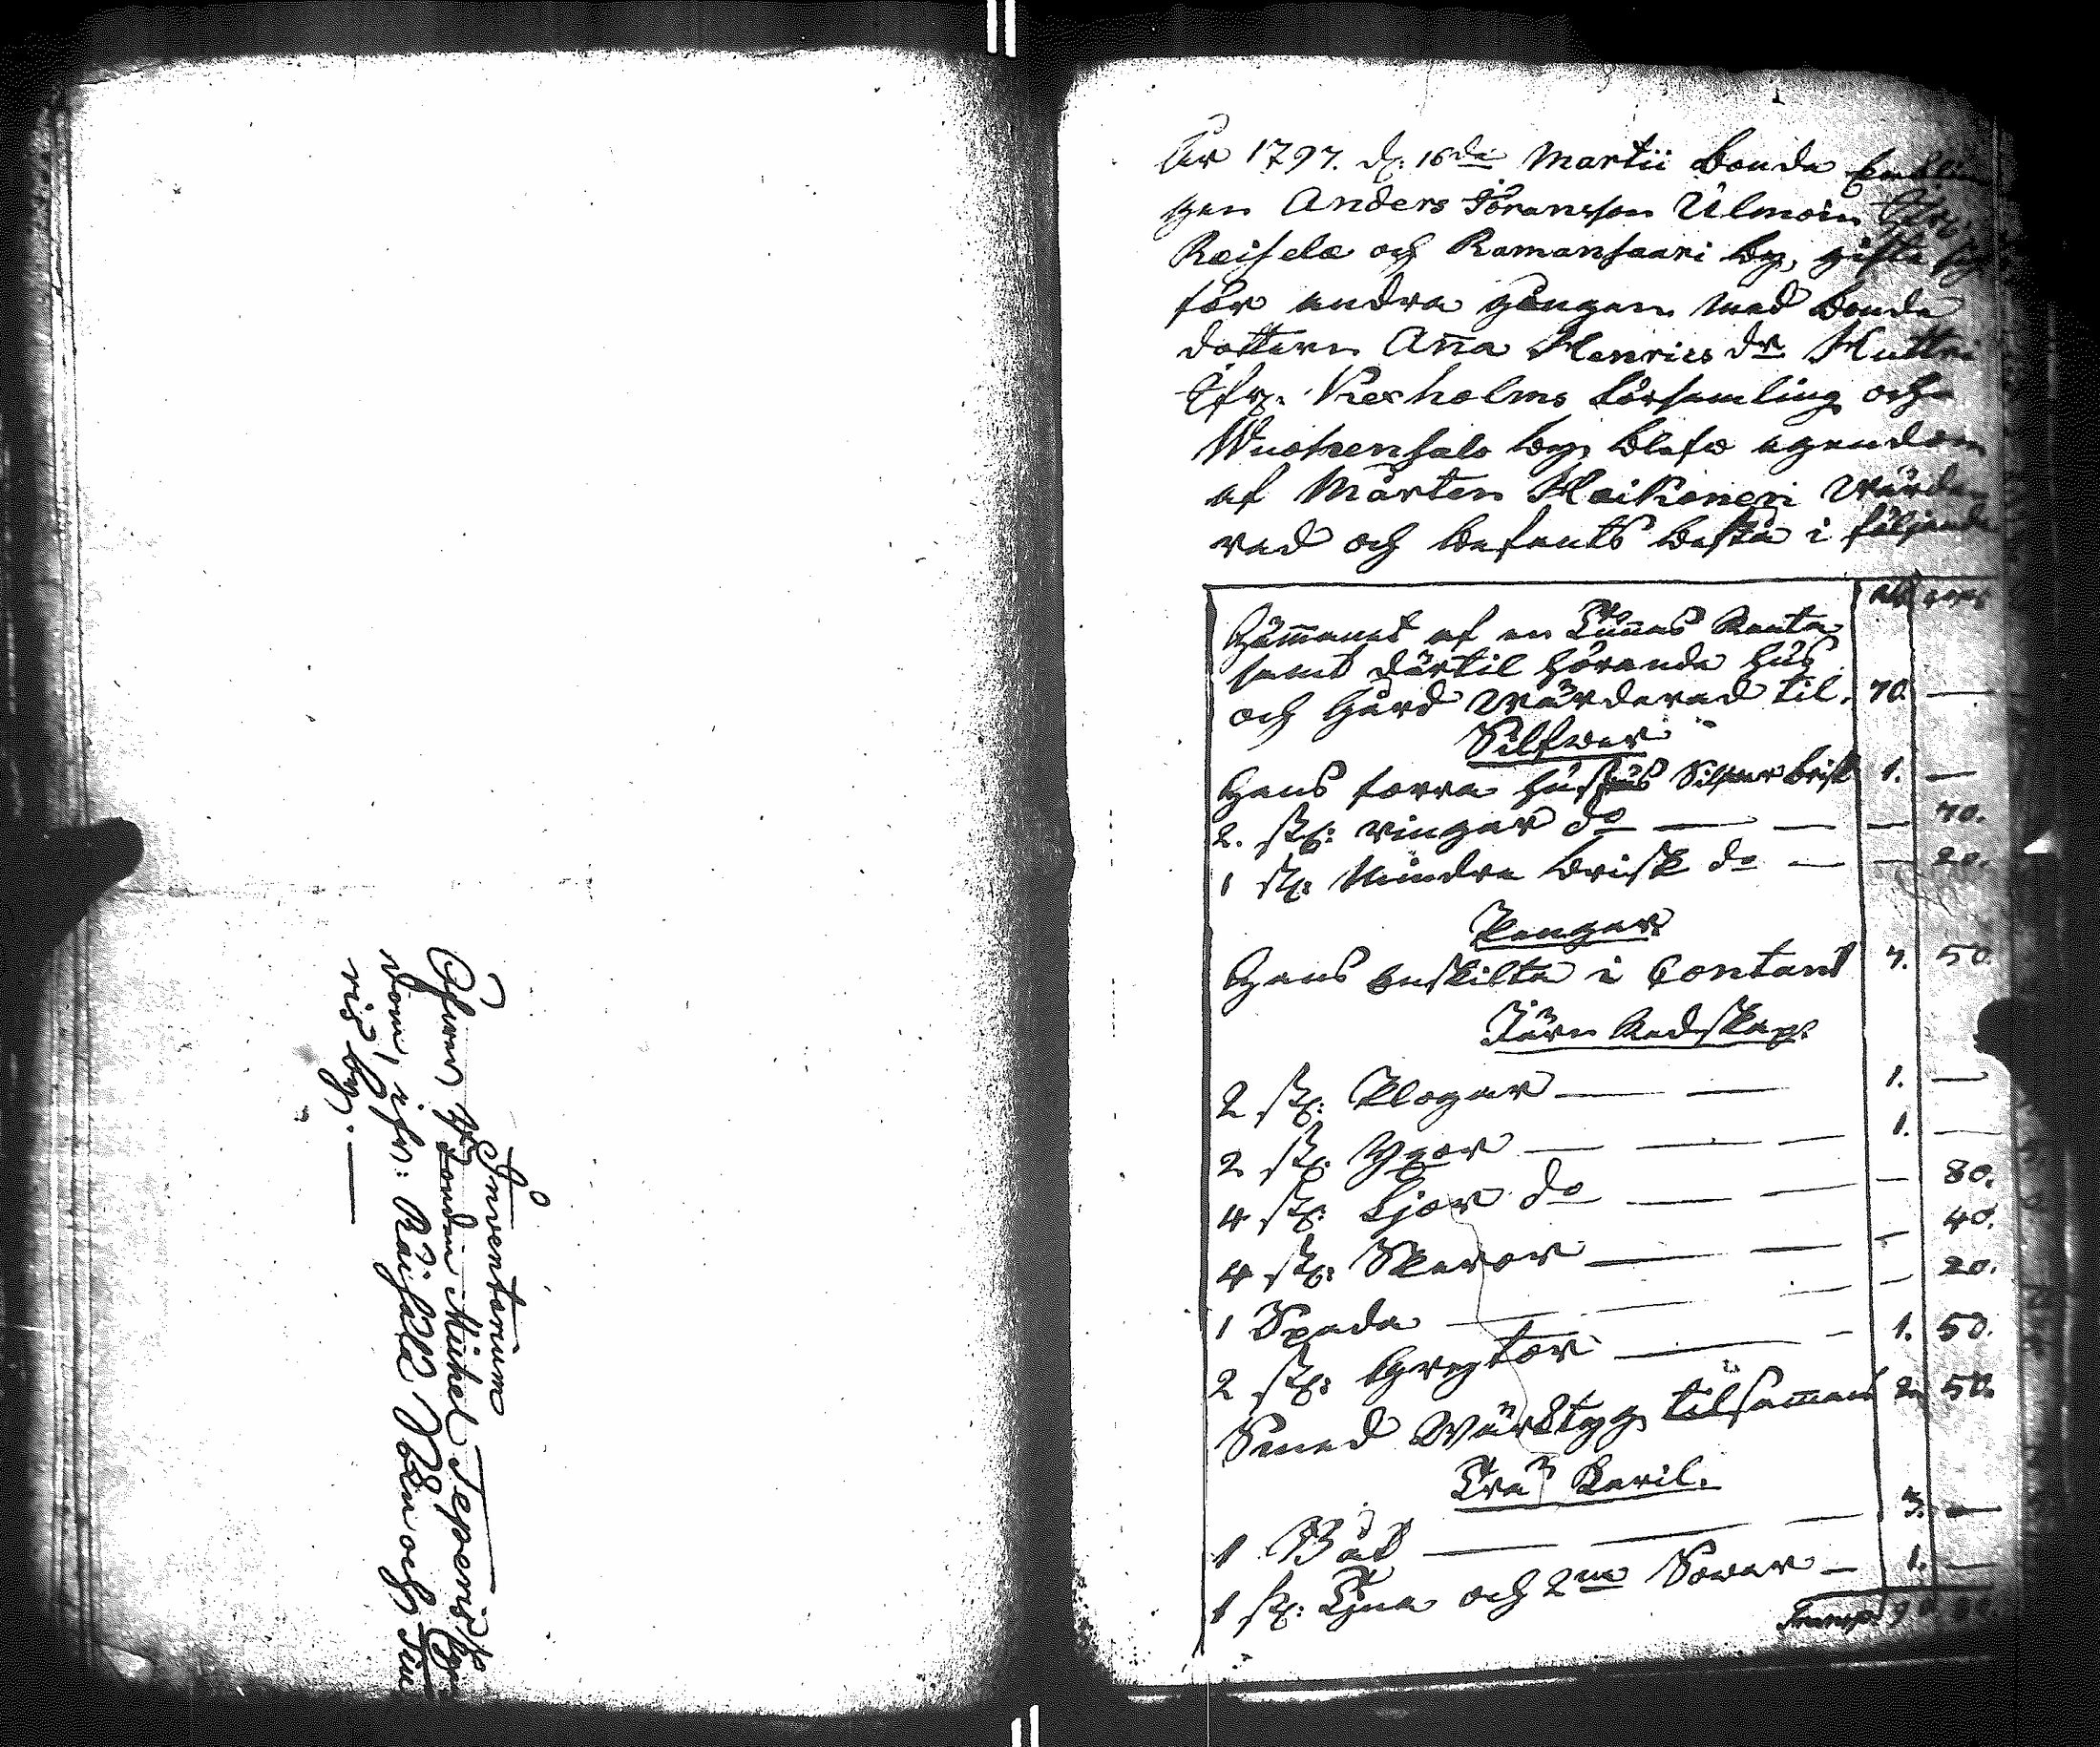 Inventarium
Öfwer Bonden Michel Teponens Egen
dom, ifr: Räisälä Sokn och Tiu
ris by. —
År 1797. d: 16de Martii bonde Enklin
gen Anders Göransson Ulmoin ifr:
Reiselæ och Ramansaari by, gifte sig
för andra gången med bonde
dottern Anna Henrics dr Huttri
ifr: Kexholms församling och
Wuohensalo by, blefw egendom
af Mårten Heikonen Wärde
rad och befants bestå i följande
Rub. cop.
Hemmanet af en Tunnas Ranta
samt därtil hörande hus
och Gård Wärderad til. 70. —
Silfwer
Hans forra hustrus Silfwer brisk 1. —
2. st: ringar do — — — 70.
1 st: mindre brisk do — — 20.
Pengar
Hans enskilta i Contant 7. 50.
Järn Redskap.
2 st: Plogar — — 1. —
2 st: Yxor — — — 1. —
4 st: Ljor do — — — 80.
4 st: Skäror — — — 40.
1 Spada — — — — 20.
2 st: Grytor — — 1. 50.
Smed Wärktyg tilsamans 2. 50.
Trä Käril.
1 Båt — — — 3. —
1 st: Tina och 2ne Såar — 1. —
Transp.